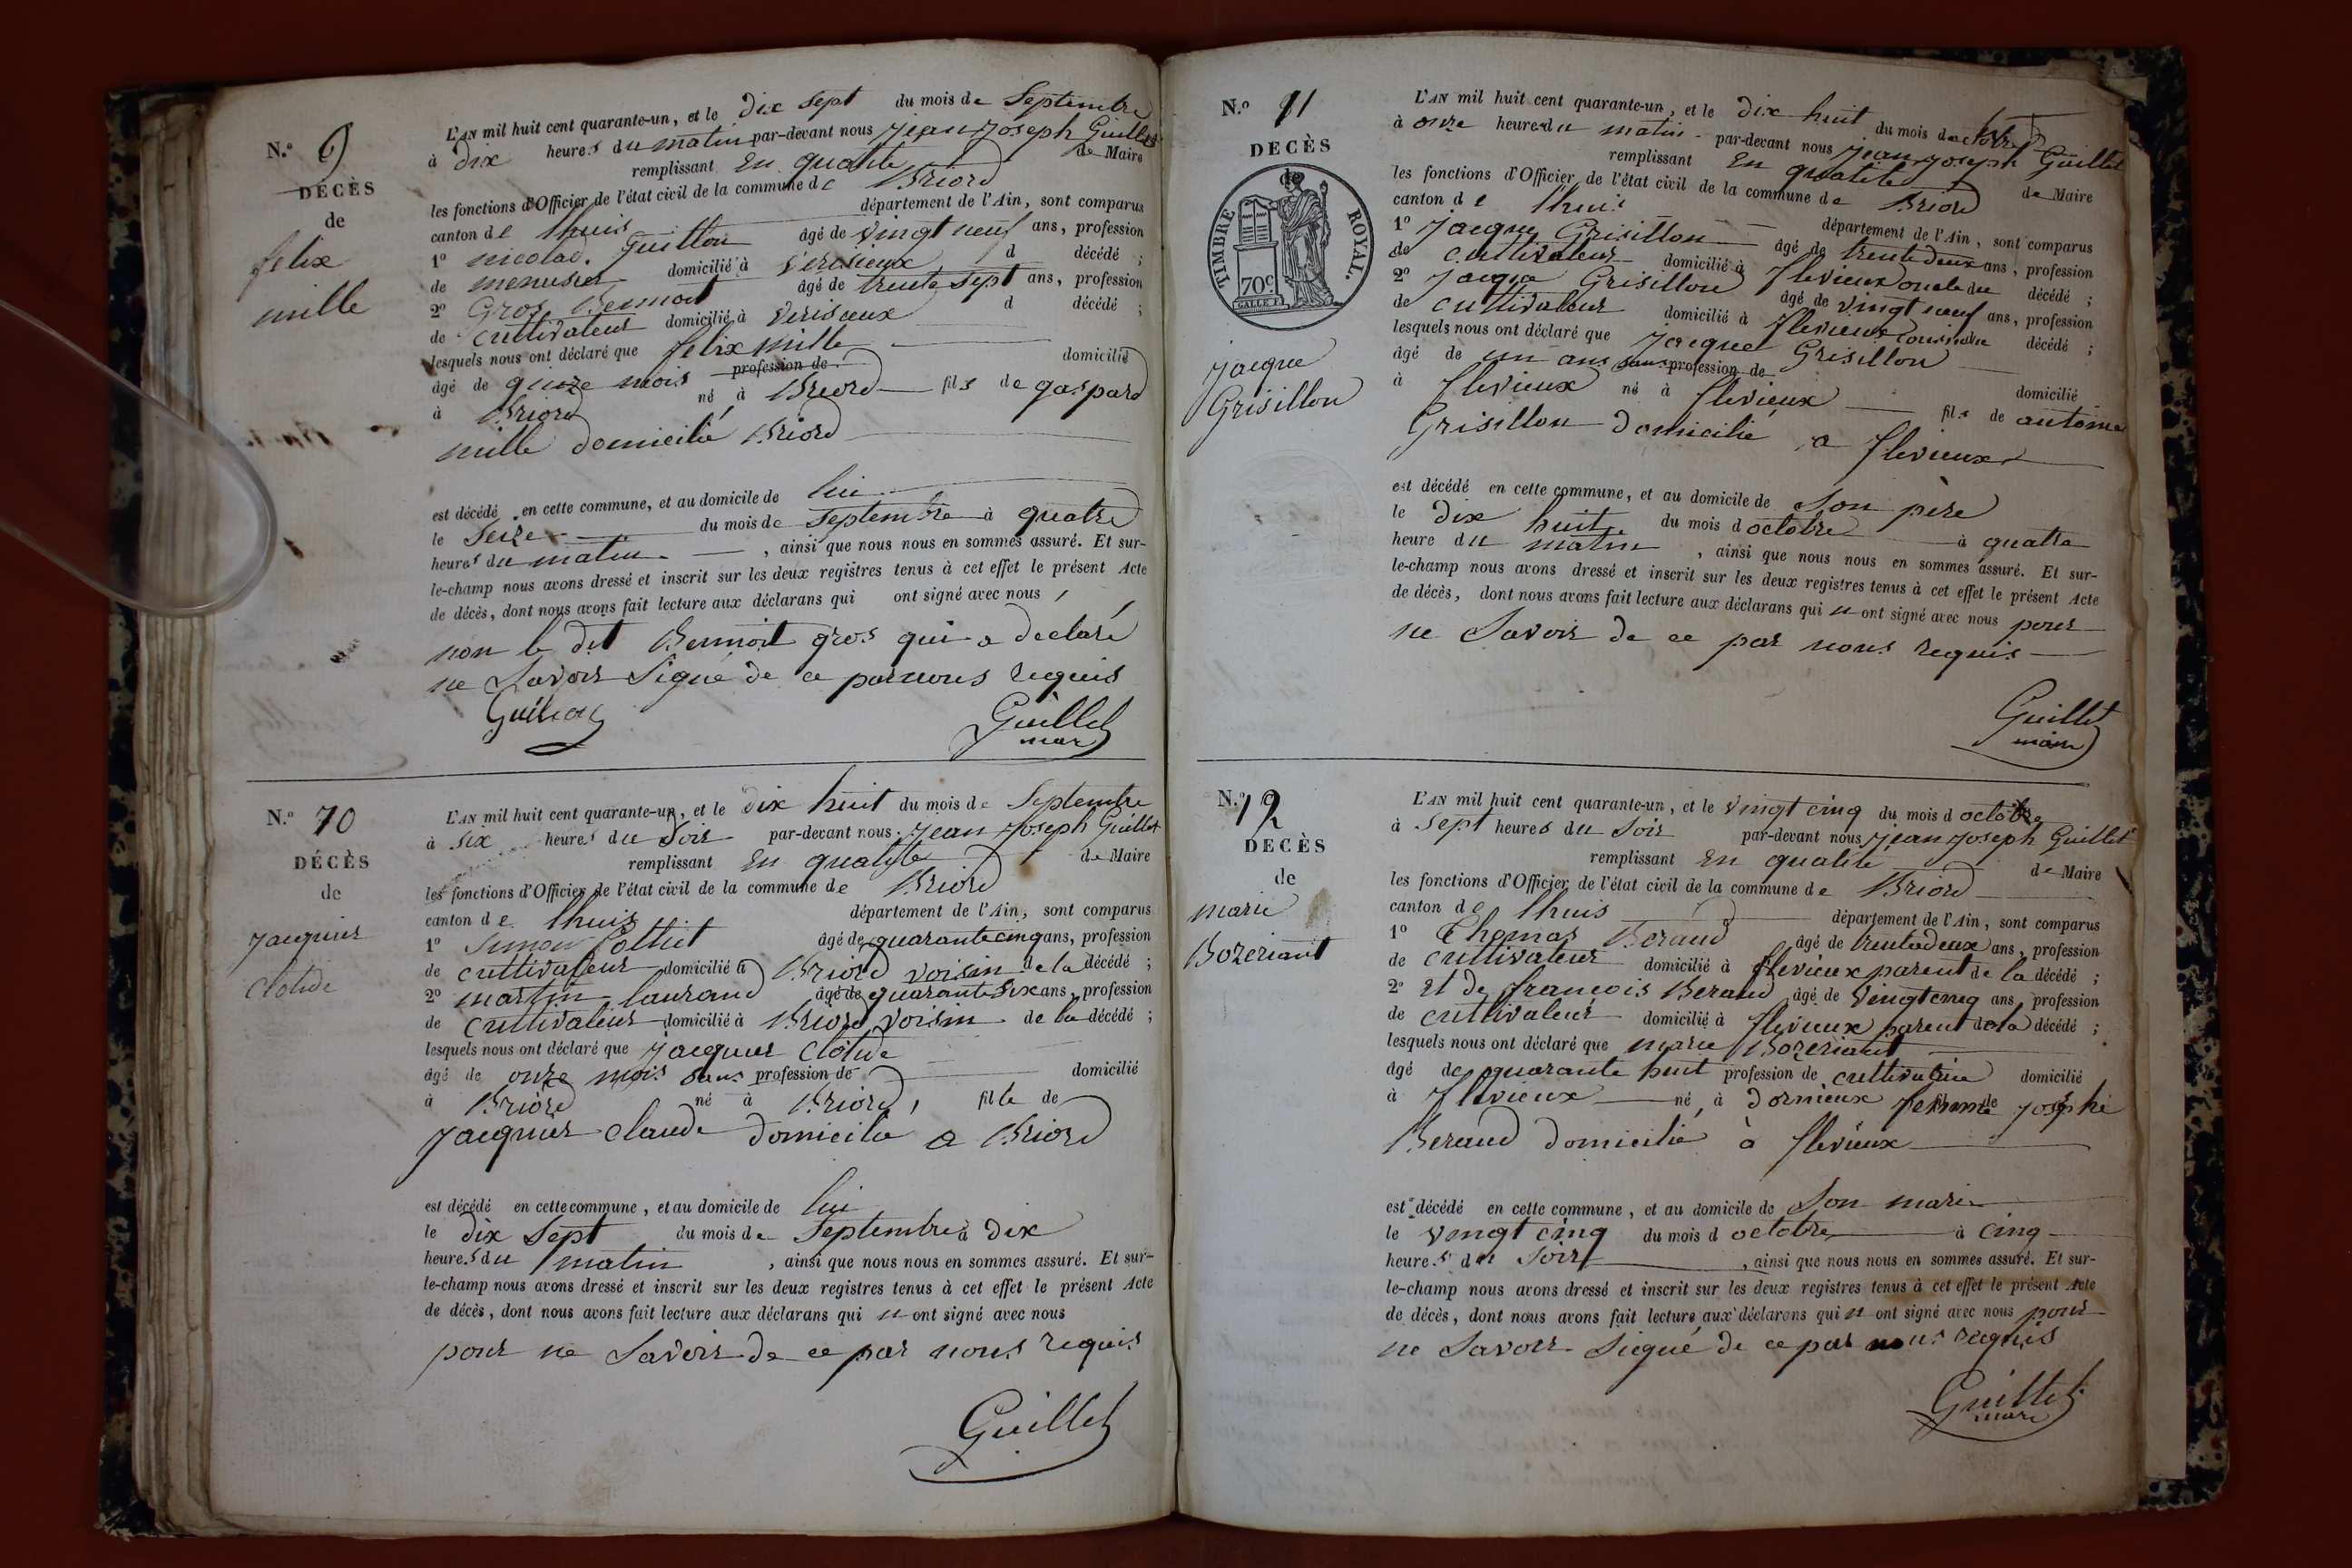 N.º 9
DÉCÈS
de
felix
mille
L'AN mil huit cent quarante-un, et le Dix Sept du mois de Septembre
à Dix heures du matin par-devant nous jean joseph Guillet
remplissant En qualité de Maire
les fonctions d'Officier de l'état civil de la commune de Briord
canton de lhuis département de l'Ain, sont comparus
1º nicolas Guillon âgé de vingt neuf ans, profession
de menusier domicilié à d décédé ;
2º Gros Bennoit âgé de trente sept ans, profession
de cultivateur domicilié à d décédé ;
lesquels nous ont déclaré que felix mille
âgé de quinze mois profession de domicilié
à Briord né à Briord fils de gaspard
mille domicilié Briord
est décédé en cette commune, et au domicile de lui
le Seize du mois de Septembre à quatre
heures du matin , ainsi que nous nous en sommes assuré. Et sur-
le-champ nous avons dressé et inscrit sur les deux registres tenus à cet effet le présent Acte
de décès, dont nous avons fait lecture aux déclarans qui ont signé avec nous ,
non le dit Bennoit gros qui a declaré
ne Savoir Signé de ce par nous requis
Guillon Guillet
maire
N.º 10
DÉCÈS
de
jacquier
clotide
L'AN mil huit cent quarante-un, et le Dix huit du mois de Septembre
à Six heures du Soir par-devant nous jean joseph Guillet
remplissant En qualité de Maire
les fonctions d'Officier de l'état civil de la commune de Briord
canton de lhuis département de l'Ain, sont comparus
1º Simon âgé de quarante cinq ans, profession
de cultivateur domicilié à Briord voisin de la décédé ;
2º martin laurand âgé de quarante Six ans, profession
de cultivateur domicilié à Briord voisin de la décédé ;
lesquels nous ont déclaré que jacquier clotide
âgé de onze mois Sans profession de domicilié
à Briord né à Briord, fille de
jacquier claude domicilié a Briord
est décédé en cette commune, et au domicile de lui
le dix Sept du mois de Septembre à Dix
heures du matin , ainsi que nous nous en sommes assuré. Et sur-
le-champ nous avons dressé et inscrit sur les deux registres tenus à cet effet le présent Acte
de décès, dont nous avons fait lecture aux déclarans qui n ont signé avec nous
pour ne Savoir de ce par nous requis
Guillet
N.º 11
DÉCÈS
de
TIMBRE ROYAL.
70 C.
jacque
Grisillon
L'AN mil huit cent quarante-un, et le Dix huit du mois doctobre
à onze heures du matin par-devant nous jean joseph Guillet
remplissant En qualité de Maire
les fonctions d'Officier de l'état civil de la commune de Briord
canton de lhuis département de l'Ain, sont comparus
1º jacque Grisillon âgé de trente deux ans, profession
de cultivateur domicilié à flevieux oncle du décédé ;
2º jacque Grisillon âgé de vingt neuf ans, profession
de cultivateur domicilié à flevieux Cousin du décédé ;
lesquels nous ont déclaré que jacque Grisillon
âgé de un ans Sans profession de domicilié
à flevieux né à flevieux fils de antoine
Grisillon Domicilié a flevieux
est décédé en cette commune, et au domicile de Son père
le dix huit du mois d octobre à quatre
heure du matin , ainsi que nous nous en sommes assuré. Et sur-
le-champ nous avons dressé et inscrit sur les deux registres tenus à cet effet le présent Acte
de décès, dont nous avons fait lecture aux déclarans qui n ont signé avec nous pour
ne Savoir de ce par nous requis
Guillet
maire
N.º 12
DÉCÈS
de
marie
Bozeriant
L'AN mil huit cent quarante-un, et le vingt cinq du mois d octobre
à Sept heures du Soir par-devant nous jean joseph Guillet
remplissant En qualité de Maire
les fonctions d'Officier de l'état civil de la commune de Briord
canton de lhuis département de l'Ain, sont comparus
1º Thomas Beraud âgé de trente deux ans, profession
de cultivateur domicilié à flevieux parent de la décédé ;
2º Et de francois Beraud âgé de vingt cinq ans profession
de cultivateur domicilié à flevieux parent de la décédé ;
lesquels nous ont déclaré que marie Bozeriant
âgé de quarante huit profession de cultivatrice domicilié
à flevieux né à dornieux femme de joseph
Beraud domicilié à flevieux
est décédé en cette commune, et au domicile de Son marie
le vingt cinq du mois d octobre à cinq
heures du Soir , ainsi que nous nous en sommes assuré. Et sur-
le-champ nous avons dressé et inscrit sur les deux registres tenus à cet effet le présent Acte
de décès, dont nous avons fait lecture aux déclarans qui n ont signé avec nous pour
ne Savoir Signé de ce par nous requis
Guillet
maire